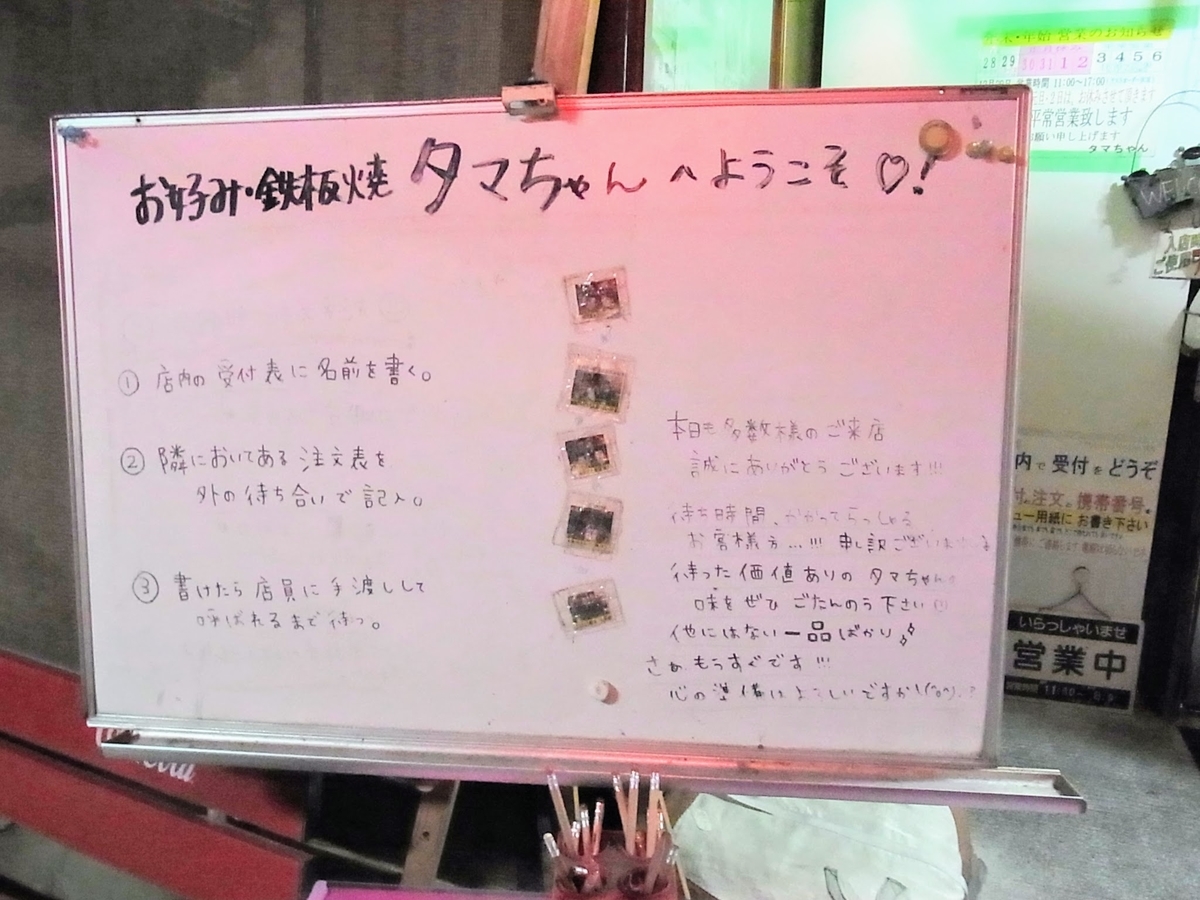 お好み・鉄板焼 タマちゃん へようこそ♡!
① 店内の受付表に名前を書く。
② 隣においてある注文表を
外の待ち合いで記入。
③ 書けたら店員に手渡しして
呼ばれるまで待つ。
本日も多数様のご来店
誠にありがとうございます!!!
待ち時間、かかってらっしゃる
お客様方...!!! 申し訳ございませ
待った価値ありのタマちゃん
味をぜひ ごたんのう下さい
他にはない一品ばかり
さぁもうすぐです!!!
心の準備はよろしいですか
年始 営業のお知らせ
28 29 30 31 1 2 3 4 5 6
営業時間 11:00~17:00
お休みさせて頂きます
平常営業致します
お願い申し上げます
タマちゃん
入店
内で受付をどうぞ
注文 携帯番号。
ュー用紙にお書き下さい
いらっしゃいませ
営業中
営業時間